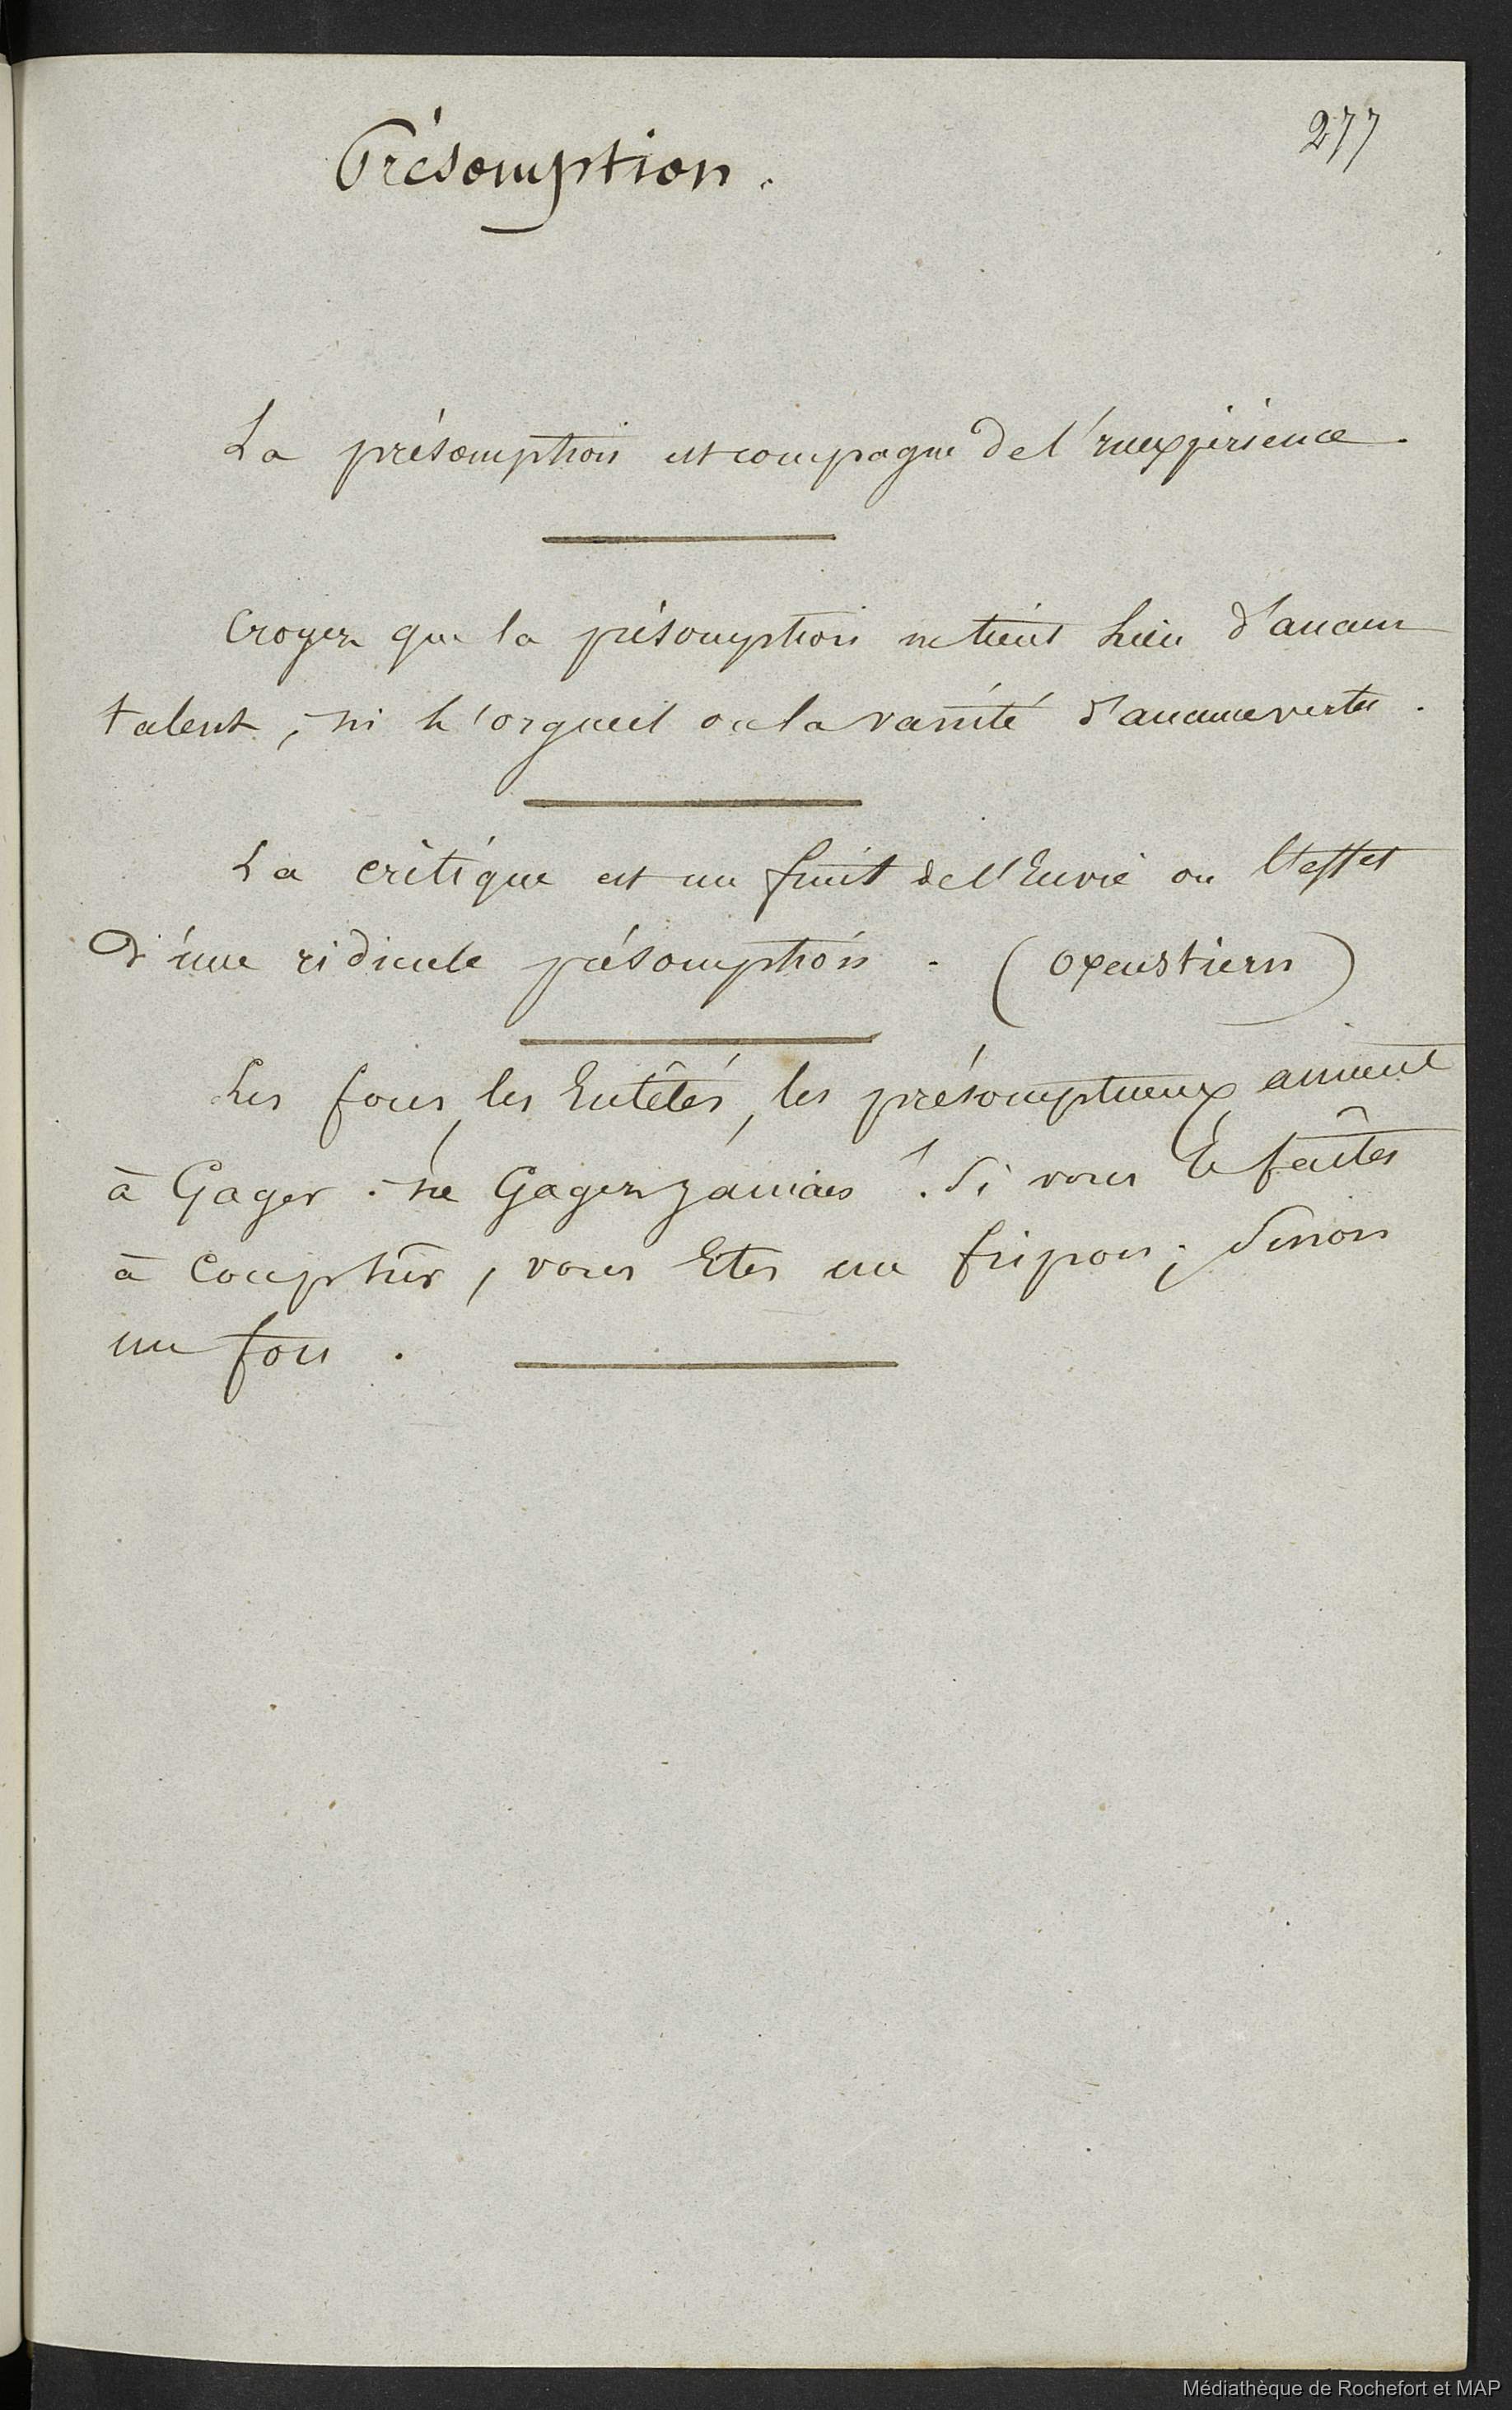 277
Présomption.
La présomption est compagne de l'inexpérience.
Croyez que la présomption ne tient lieu d'aucun
talent, ni l'orgueil ou la vanité d'aucune vertu.
La critique est un fruit de l'Envie ou l'effet
d'une ridicule présomption. (Oxenstiern)
Les fous, les Entêtés, les présomptueux aiment
à Gager : ne Gagez jamais ! Si vous le faîtes
à coup sûr, vous Etes un fripon ; Sinon
un fou.
Médiathèque de Rochefort et MAP